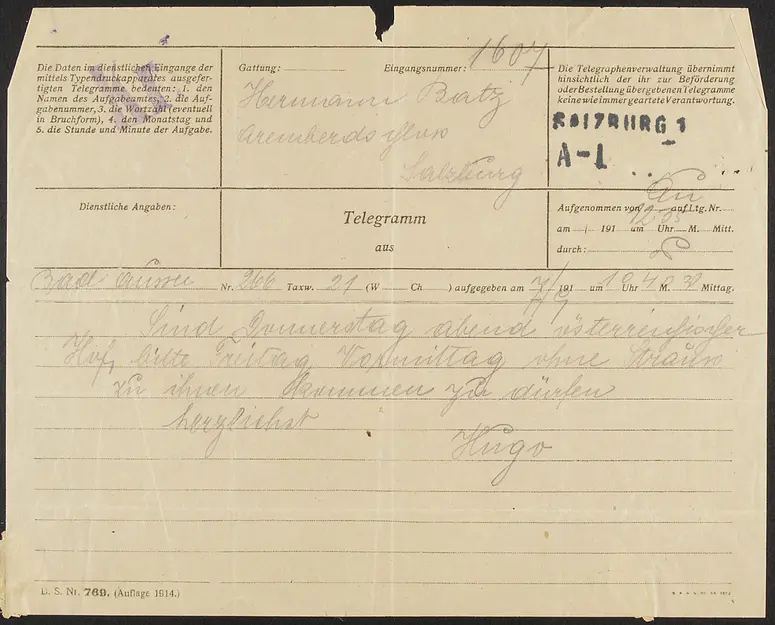 Die Daten im dienstlichen Eingange der
mittels Typendruckapparates ausgefer-
tigten Telegramme bedeuten: 1. den
Namen des Aufgabeamtes, 2. die Auf-
gabenummer, 3. die Wortzahl (eventuell
in Bruchform), 4. den Monatstag und
5. die Stunde und Minute der Aufgabe.
Gattung: Eingangsnummer: 1607
Hermann Batz
Salzburg
Die Telegraphenverwaltung übernimmt
hinsichtlich der ihr zur Beförderung
oder Bestellung übergebenen Telegramme
keine wie immer geartete Verantwortung.
SALZBURG 1
A-1
Dienstliche Angaben:
Telegramm
aus
Aufgenommen von auf Ltg. Nr.
am / 191 um Uhr M. Mitt.
durch:
Bad Aussee Nr. 266 Taxw. 21 (W Ch ) aufgegeben am 7/9 191 um Uhr M. Mittag.
Sind Donnerstag abend österreichischer
Hof, bitte Freitag Vormittag ohne
zu ihnen kommen zu dürfen
herzlichst
Hugo
D. S. Nr. 769. (Auflage 1914.)